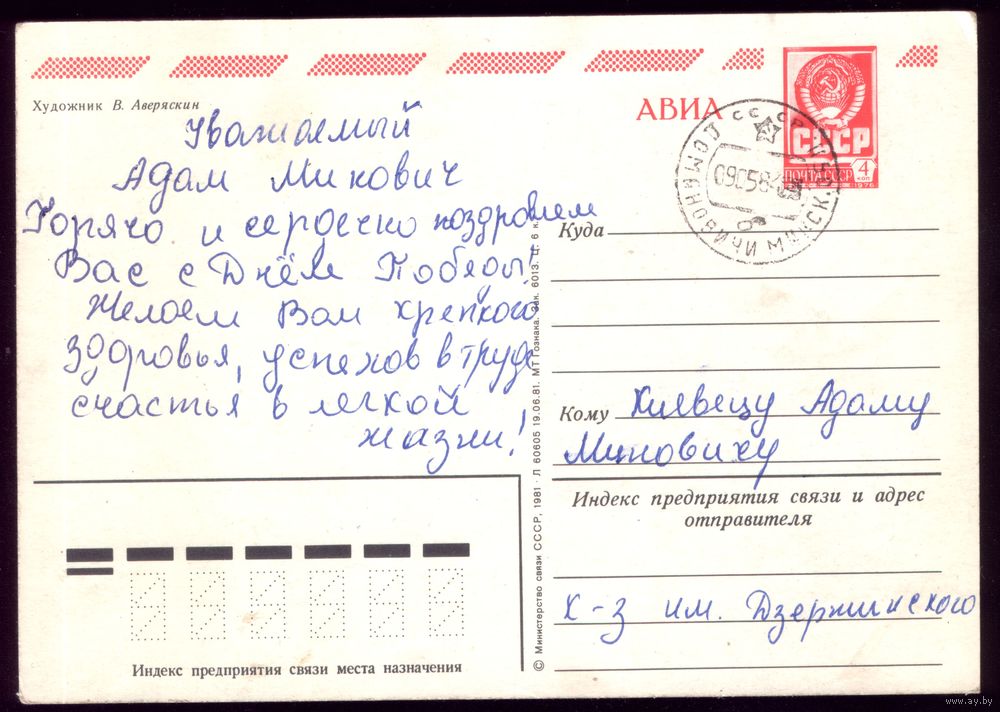 Художник В. Аверяскин
Уважаемый
Адам Минович
Горячо и сердечно поздровлем
Вас с Днём Победы!
Желаем Вам крепкого
здоровья, успехов в труде
счастья в легкой
жизни!
АВИА
СССР
ПОЧТА СССР
4
КОП
1976
СССР
ДОМАНОВИЧИ МИНСК.
Куда
Кому Хиевецу Адаму
Миновичу
Индекс предприятия связи и адрес
отправителя
к-з им. Дзержинского
Индекс предприятия связи места назначения
© Министерство связи СССР, 1981 · Л 60605 19.06.81. МТ Гознака. Зак. 6013. Ц. 6 к.
www.ay.by